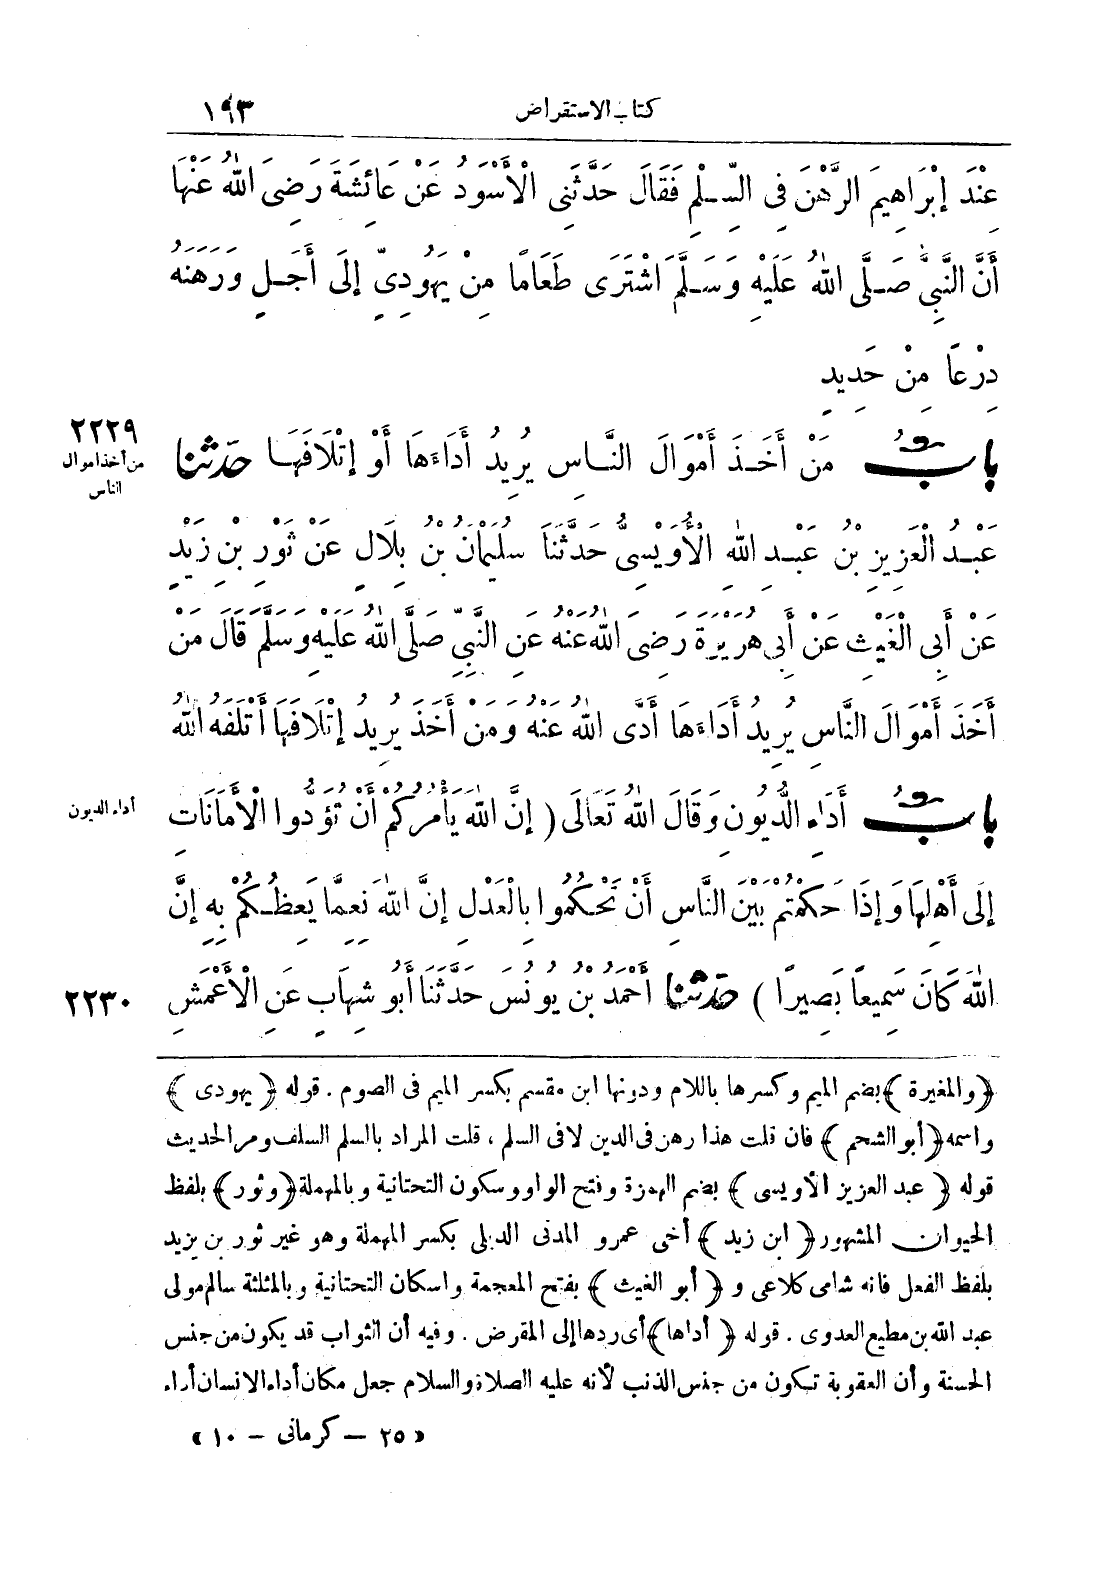 كتاب الاستقراض ١٩٣
عِنْدَ إِبْرَاهِيمَ الرَّهْنَ فِي السِّلْمِ فَقَالَ حَدَّثَنِى الْأَسْوَدُ عَنْ عَائِشَةَ رَضِىَ اللهُ عَنْهَا
أَنَّ النَّبِىَّ صَلَّى اللهُ عَلَيْهِ وَسَلَّمَ اشْتَرَى طَعَامًا مِنْ يَهُودِىٍّ إِلَى أَجَلٍ وَرَهَنَهُ
دِرْعًا مِنْ حَدِيدٍ
بابُ مَنْ أَخَذَ أَمْوَالَ النَّاسِ يُرِيدُ أَدَاءَهَا أَوْ إِتْلَافَهَا حدّثنا
٢٢٢٩
من أخذ اموال
الناس
عَبْدُ الْعَزِيزِ بْنُ عَبْدِ اللهِ الْأُوَيْسِىُّ حَدَّثَنَا سُلَيْمَانُ بْنُ بِلَالٍ عَنْ ثَوْرِ بْنِ زَيْدٍ
عَنْ أَبِى الْغَيْثِ عَنْ أَبِى هُرَيْرَةَ رَضِىَ اللهُ عَنْهُ عَنِ النَّبِيِّ صَلَّى اللهُ عَلَيْهِ وَسَلَّمَ قَالَ مَنْ
أَخَذَ أَمْوَالَ النَّاسِ يُرِيدُ أَدَاءَهَا أَدَّى اللهُ عَنْهُ وَمَنْ أَخَذَ يُرِيدُ إِتْلَافَهَا أَتْلَفَهُ اللهُ
بابُ أَدَاءِ الدُّيُونِ وَقَالَ اللهُ تَعَالَى ( إِنَّ اللهَ يَأْمُرُكُمْ أَنْ تُؤَدُّوا الْأَمَانَاتِ
أداء الديون
إِلَى أَهْلِهَا وَإِذَا حَكَمْتُمْ بَيْنَ النَّاسِ أَنْ تَحْكُمُوا بِالْعَدْلِ إِنَّ اللهَ نِعِمَّا يَعِظُكُمْ بِهِ إِنَّ
اللهَ كَانَ سَمِيعًا بَصِيرًا ) حدّثنا أَحْمَدُ بْنُ يُونُسَ حَدَّثَنَا أَبُو شِهَابٍ عَنِ الْأَعْمَشِ
٢٢٣٠
﴿والمغيرة﴾ بضم الميم وكسرها باللام ودونها ابن مقسم بكسر الميم فى الصوم . قوله ﴿يهودى﴾
واسمه ﴿أبو الشحم﴾ فان قلت هذا رهن فى الدين لا فى السلم ، قلت المراد بالسلم السلف ومر الحديث
قوله ﴿عبد العزيز الأويسى﴾ بضم الهمزة وفتح الواو وسكون التحتانية وبالمهملة ﴿وثور﴾ بلفظ
الحيوان المشهور ﴿ابن زيد﴾ أخى عمرو المدنى الديلى بكسر المهملة وهو غير ثور بن يزيد
بلفظ الفعل فانه شامى كلاعى و ﴿أبو الغيث﴾ بفتح المعجمة واسكان التحتانية وبالمثلثة سالم مولى
عبد الله بن مطيع العدوى . قوله ﴿أداها﴾ أى ردها إلى المقرض . وفيه أن الثواب قد يكون من جنس
الحسنة وأن العقوبة تكون من جنس الذنب لأنه عليه الصلاة والسلام جعل مكان أداء الانسان أداء
« ٢٥ — كرمانى — ١٠ »